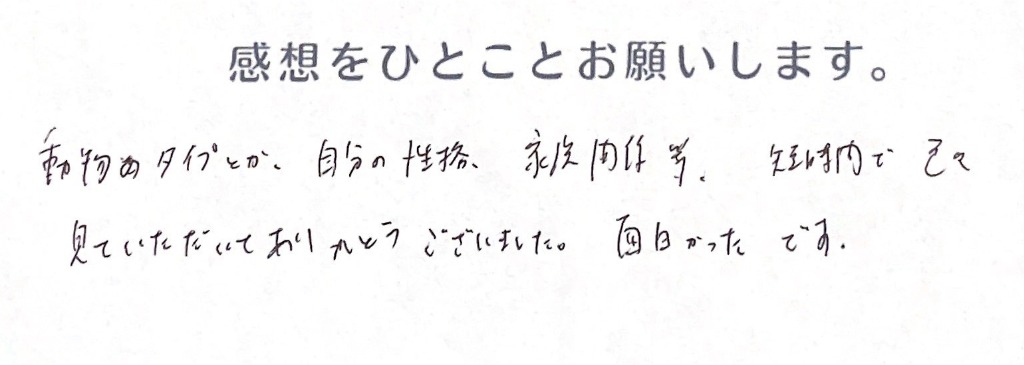 感想をひとことお願いします。
動物のタイプとか、自分の性格、家族関係等、短時間で
見ていただいてありがとうございました。面白かったです。